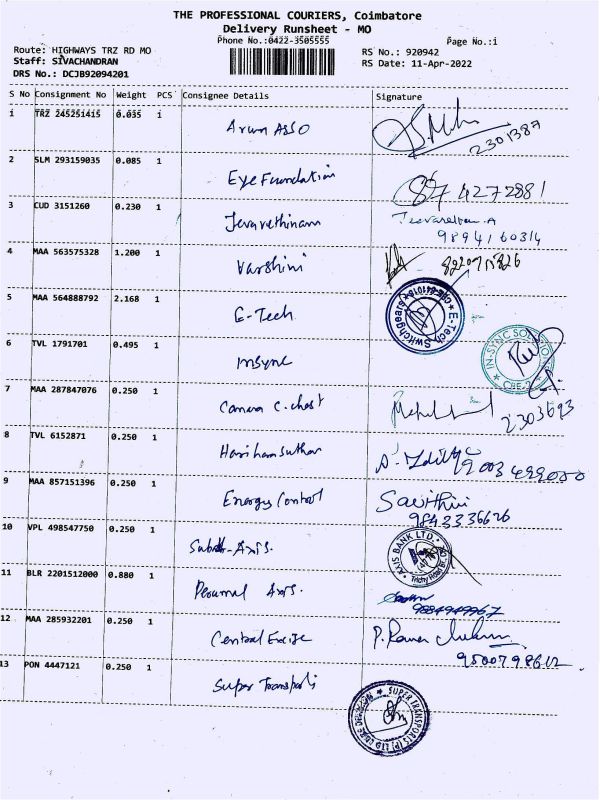 THE PROFESSIONAL COURIERS, Coimbatore
Delivery Runsheet - MO
Phone No.:0422-3505555 Page No.:1
Route: HIGHWAYS TRZ RD MO RS No.: 920942
Staff: SIVACHANDRAN RS Date: 11-Apr-2022
DRS No.: DCJB92094201
S No Consignment No Weight PCS Consignee Details Signature
1 TRZ 245251415 0.035 1 Arun ASSO
2301387
2 SLM 293159035 0.085 1 Eye Foundation
87 427 2881
3 CUD 3151260 0.230 1 Jevarethinam
9894160314
4 MAA 563575328 1.200 1 Varshini
5 MAA 564888792 2.168 1 E-Tech
E-Tech Switchgears
6 TVL 1791701 0.495 1 Insync
IN-SYNC SOLUTIONS
CBE-2
7 MAA 287847076 0.250 1 Canara C. chest
2303693
8 TVL 6152871 0.250 1 Hariham Suthan
9 MAA 857151396 0.250 1 Energy Control Savithri
9843336626
10 VPL 498547750 0.250 1 Axis.
AXIS BANK LTD.
Trichy Road
11 BLR 2201512000 0.880 1 Perumal Axis.
12 MAA 285932201 0.250 1 Central Excise P. Raman
9500798612
13 PON 4447121 0.250 1 Super Transports
SUPER TRANSPORTS (P) LTD